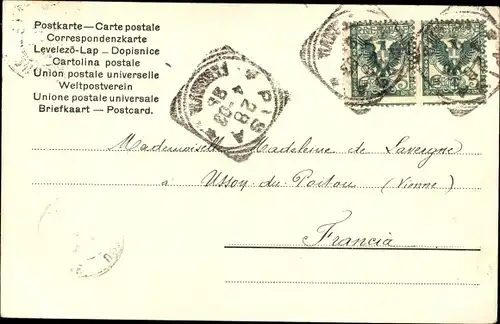 Postkarte — Carte postale
Correspondenzkarte
Levelező-Lap — Dopisnice
Cartolina postale
Union postale universelle
Weltpostverein
Unione postale universale
Briefkaart — Postcard.
PISA
Mademoiselle Madeleine de Lavergne
à Usson-du-Poitou (Vienne)
Francia